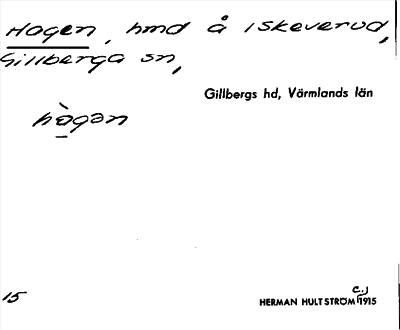 Hagen, hmd å Iskeverud,
Gillberga sn,
Gillbergs hd, Värmlands län
hàgan
15
c.)
HERMAN HULTSTRÖM 1915